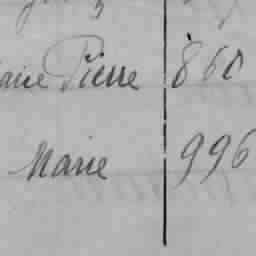 Pierre 860
Marie 996